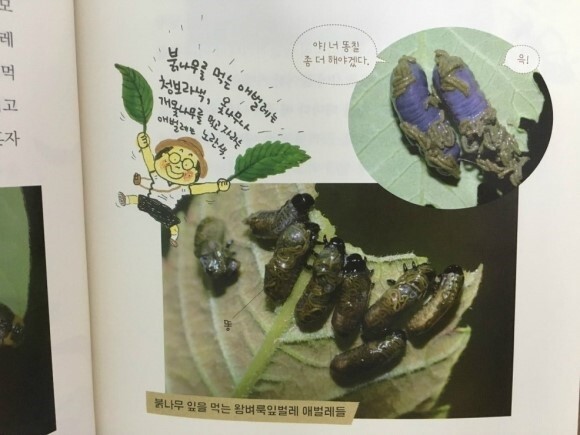 모
레
먹
고
자
붉나무를 먹는 애벌레는
청보라색, 옻나무나
개옻나무를 먹고 자라는
애벌레는 노란색.
야! 너 똥칠
좀 더 해야겠다.
윽!
똥
붉나무 잎을 먹는 왕벼룩잎벌레 애벌레들